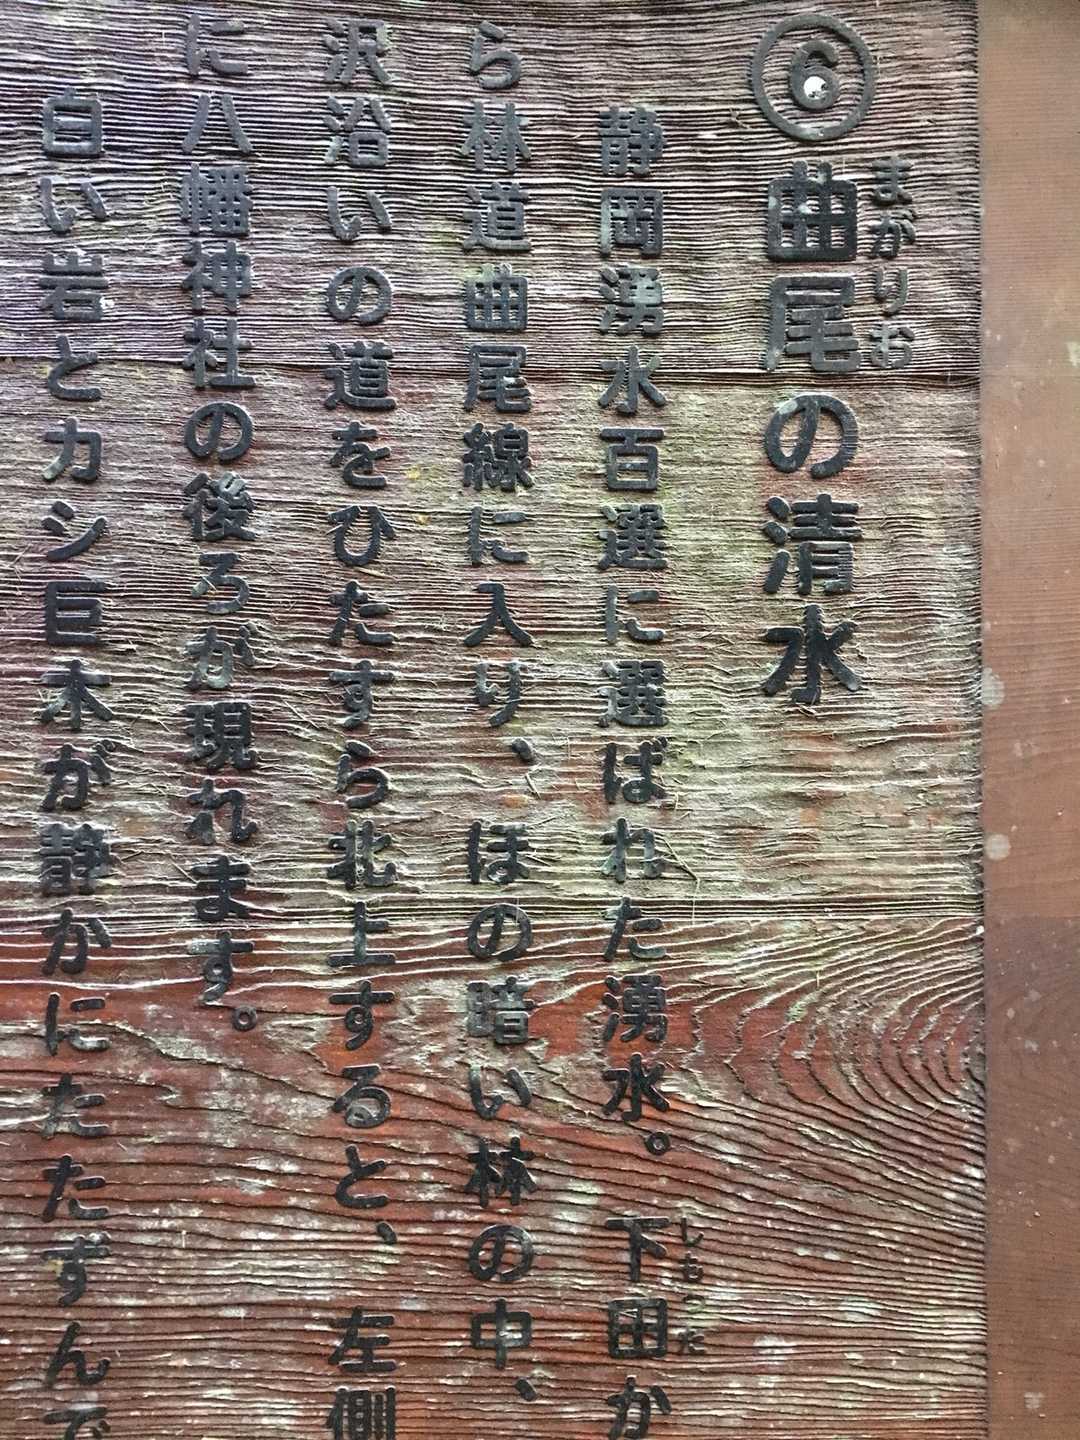 ⑥曲尾の清水
まがりお
静岡湧水百選に選ばれた湧水。下田か
しもった
ら林道曲尾線に入り、ほの暗い林の中、
沢沿いの道をひたすら北上すると、左側
に八幡神社の後ろが現れます。
白い岩とカシ巨木が静かにたたずんで